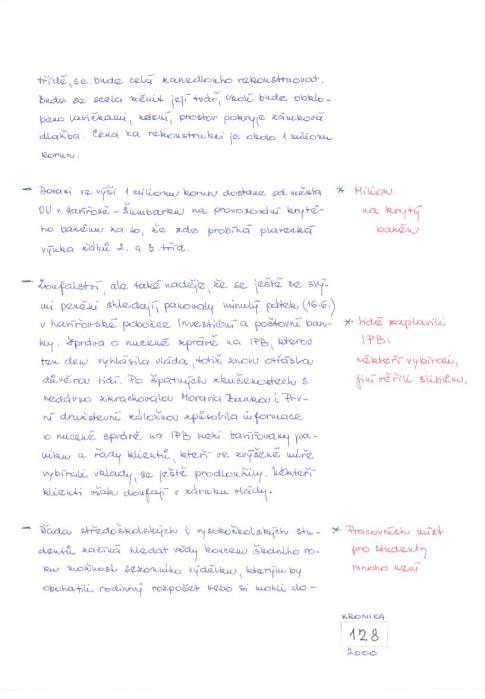 třídě, se bude celá zanedlouho rekonstruovat.
Bude se zcela měnit její tvář, okolí bude obklo-
peno lavičkami, zelení, prostor pokryje zámková
dlažba. Cena za rekonstrukci je okolo 1 milionu
korun.
- Dotaci ve výši 1 milionu korun dostane od města
DU v Havířově - Šumbarku na provozování kryté-
ho bazénu za to, že zde probíhá plavecká
výuka žáků 2. a 3. tříd.
* Milion
na krytý
bazén
- Zoufalství, ale také naděje, že se ještě se svý-
mi penězi shledají, panovaly minulý pátek (16.6.)
v havířovské pobočce Investiční a poštovní ban-
ky. Zpráva o nucené správě na IPB, kterou
ten den vyhlásila vláda, totiž znovu otřásla
důvěrou lidí. Po špatných zkušenostech s
nedávno zkrachovalou Moravia Bankou i Prv-
ní družstevní záložnou způsobila informace
o nucené správě na IPB mezi Havířovany pa-
niku a řady klientů, kteří ve zvýšené míře
vybírali vklady, se ještě prodloužily. Někteří
klienti však doufají v záruku vlády.
* Lidé zaplavili
IPB:
někteří vybírali,
jiní věřili slibům.
- Řada středoškolských i vysokoškolských stu-
dentů začíná hledat vždy koncem školního ro-
ku možnost sezonního výdělku, kterým by
obohatili rodinný rozpočet nebo si mohli do-
* Pracovních míst
pro studenty
mnoho není
KRONIKA
128
2000